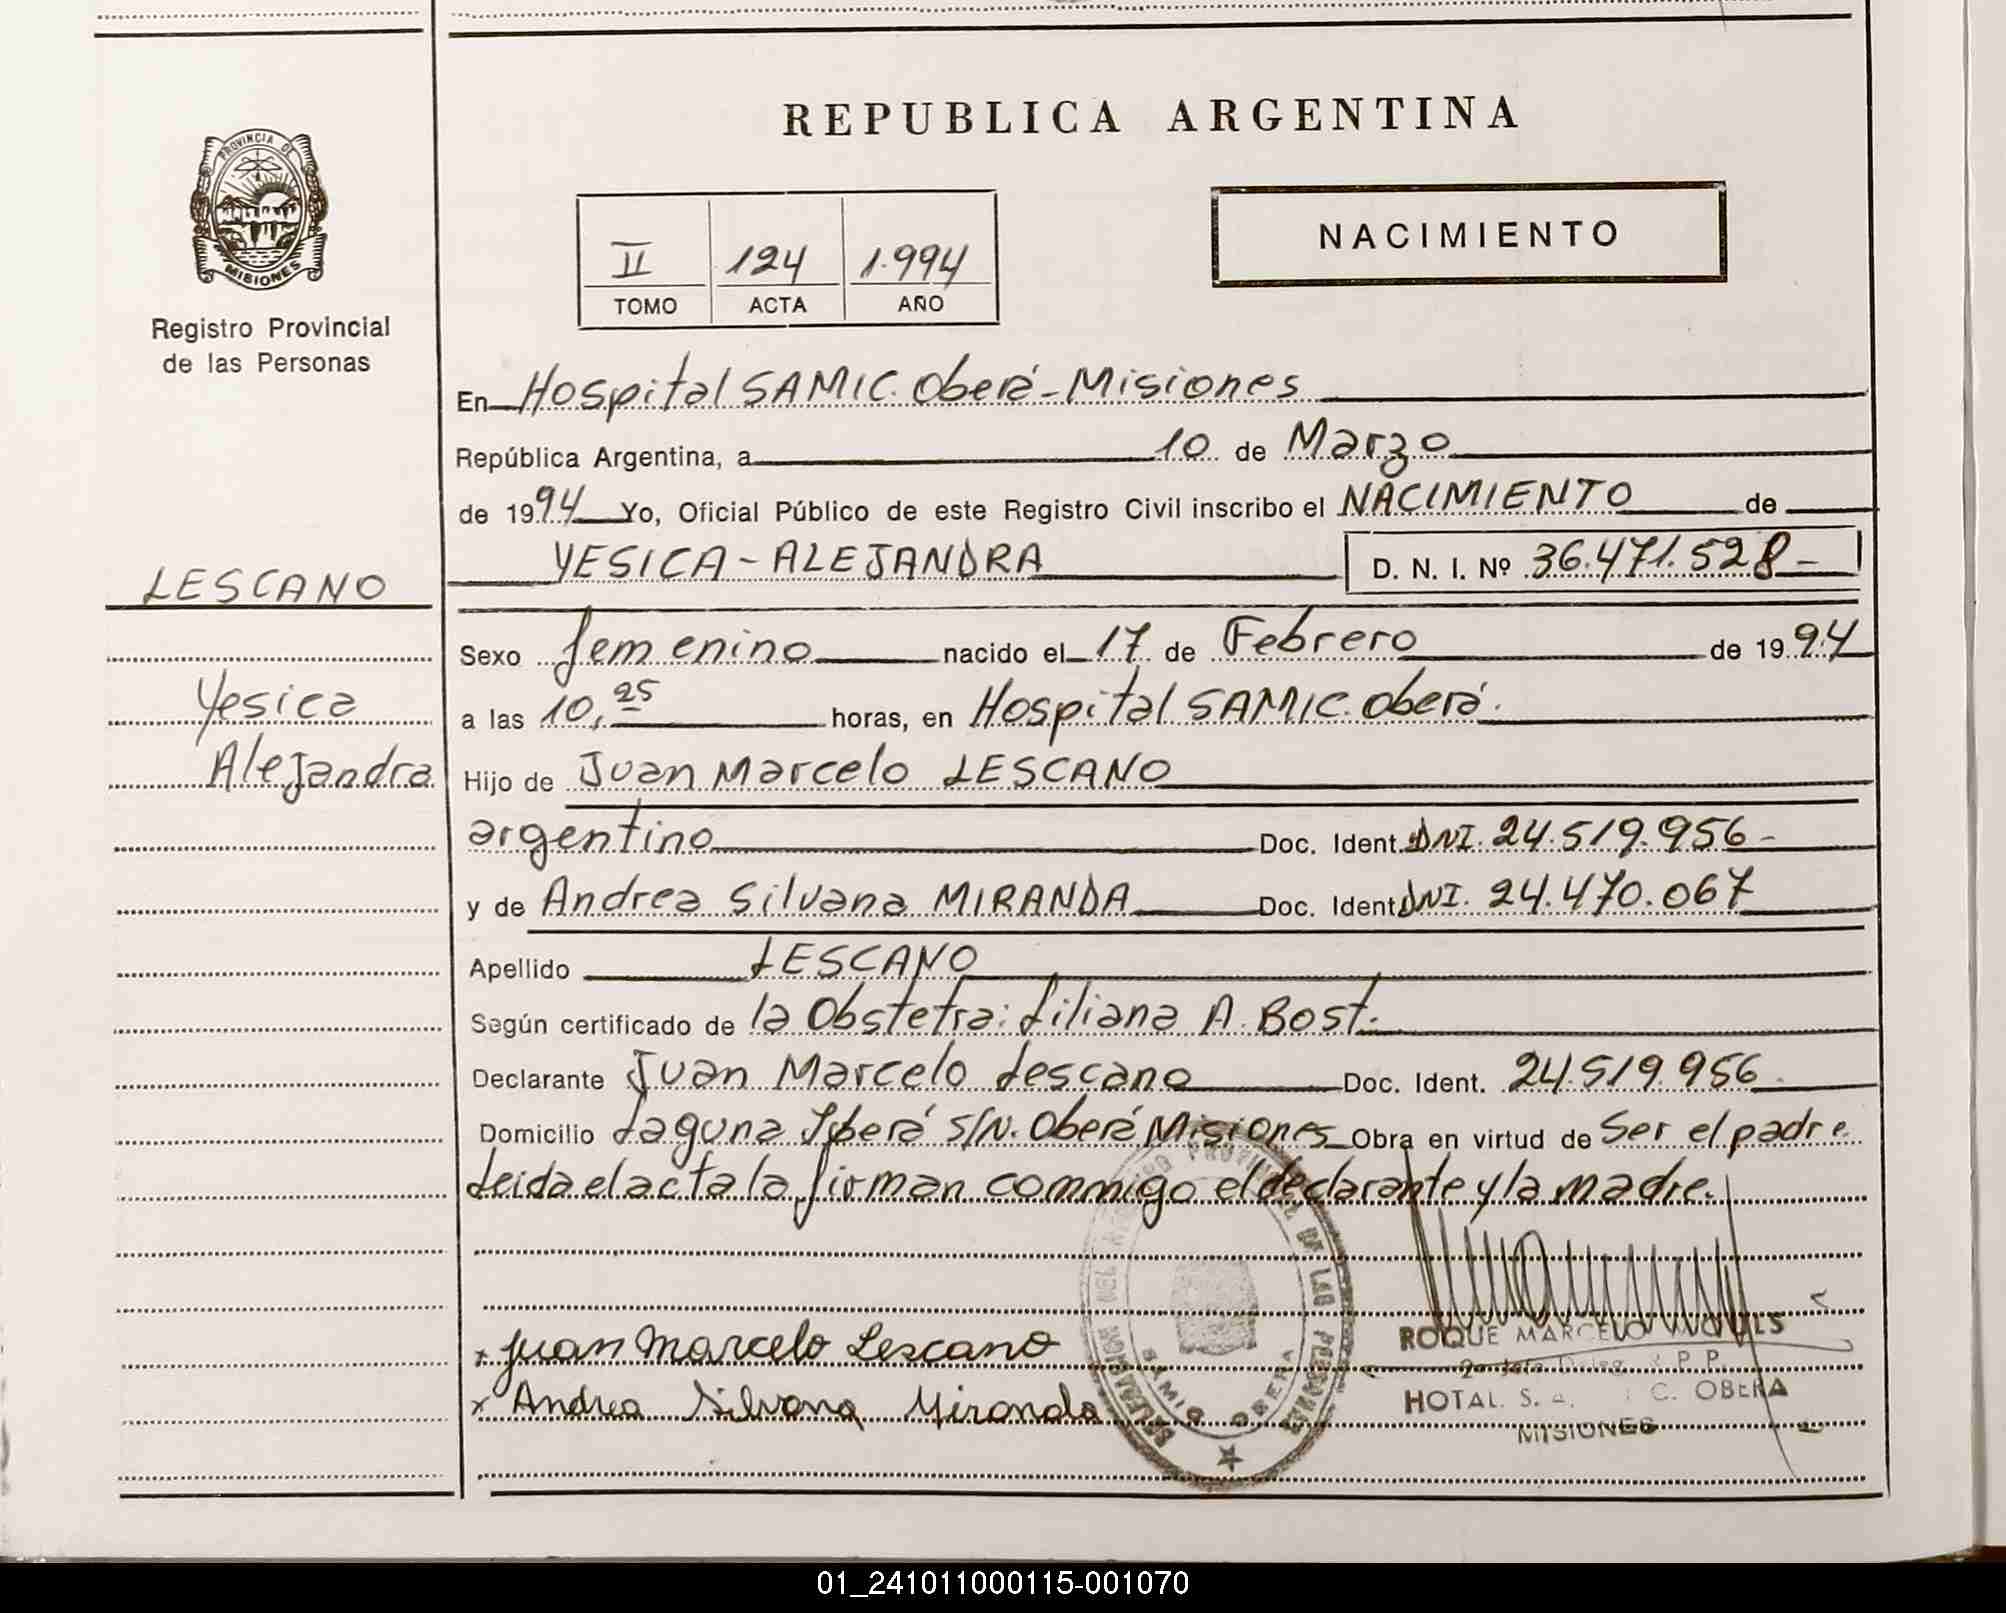 REPUBLICA ARGENTINA
PROVINCIA DE
MISIONES
Registro Provincial
de las Personas
II 124 1.994
TOMO ACTA AÑO
NACIMIENTO
En Hospital SAMIC. Oberá - Misiones
República Argentina, a 10 de Marzo
de 1994 Yo, Oficial Público de este Registro Civil inscribo el NACIMIENTO de
YESICA - ALEJANDRA D. N. I. Nº 36.471.528 -
LESCANO
Sexo femenino nacido el 17 de Febrero de 1994
Yesica
a las 10,25 horas, en Hospital SAMIC. Oberá.
Alejandra
Hijo de Juan Marcelo LESCANO
argentino Doc. Ident. DNI. 24.519.956 -
y de Andrea Silvana MIRANDA Doc. Ident. DNI. 24.470.067
Apellido LESCANO
Según certificado de la Obstetra: Liliana A. Bost.
Declarante Juan Marcelo Lescano Doc. Ident. 24.519.956
Domicilio Laguna Iberá S/N. Oberá Misiones Obra en virtud de Ser el padre
Leida el acta la firman commigo el declarante y la madre.
x Juan Marcelo Lescano
x Andrea Silvana Miranda
DELEGACION DEL REGISTRO PROVINCIAL DE LAS PERSONAS
OBERA
ROQUE MARCELO
R.P.P.
HOTAL. S. C. OBERA
MISIONES
01_241011000115-001070